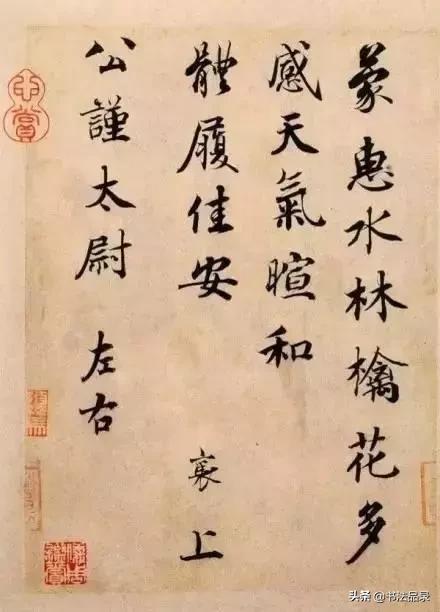 蒙惠水林檎花多
感天氣暄和
體履佳安 襄上
公謹太尉 左右
頭条 @书法品录